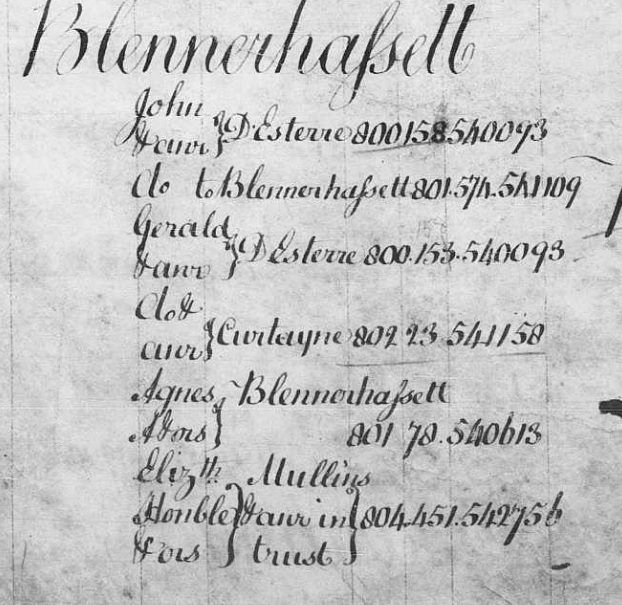 Blennerhaſsett
John
& anr } D'Esterre 800.158.540093
do to Blennerhaſsett 801.574.541109
Gerald
& anr } D'Esterre 800.153.540093
do &
anr } Curtayne 802 23 541158
Agnes } Blennerhaſsett
& ors } 801 78 540613
Elizth Mullins
Honble } & anr in } 804.451.542756
& ors } trust }